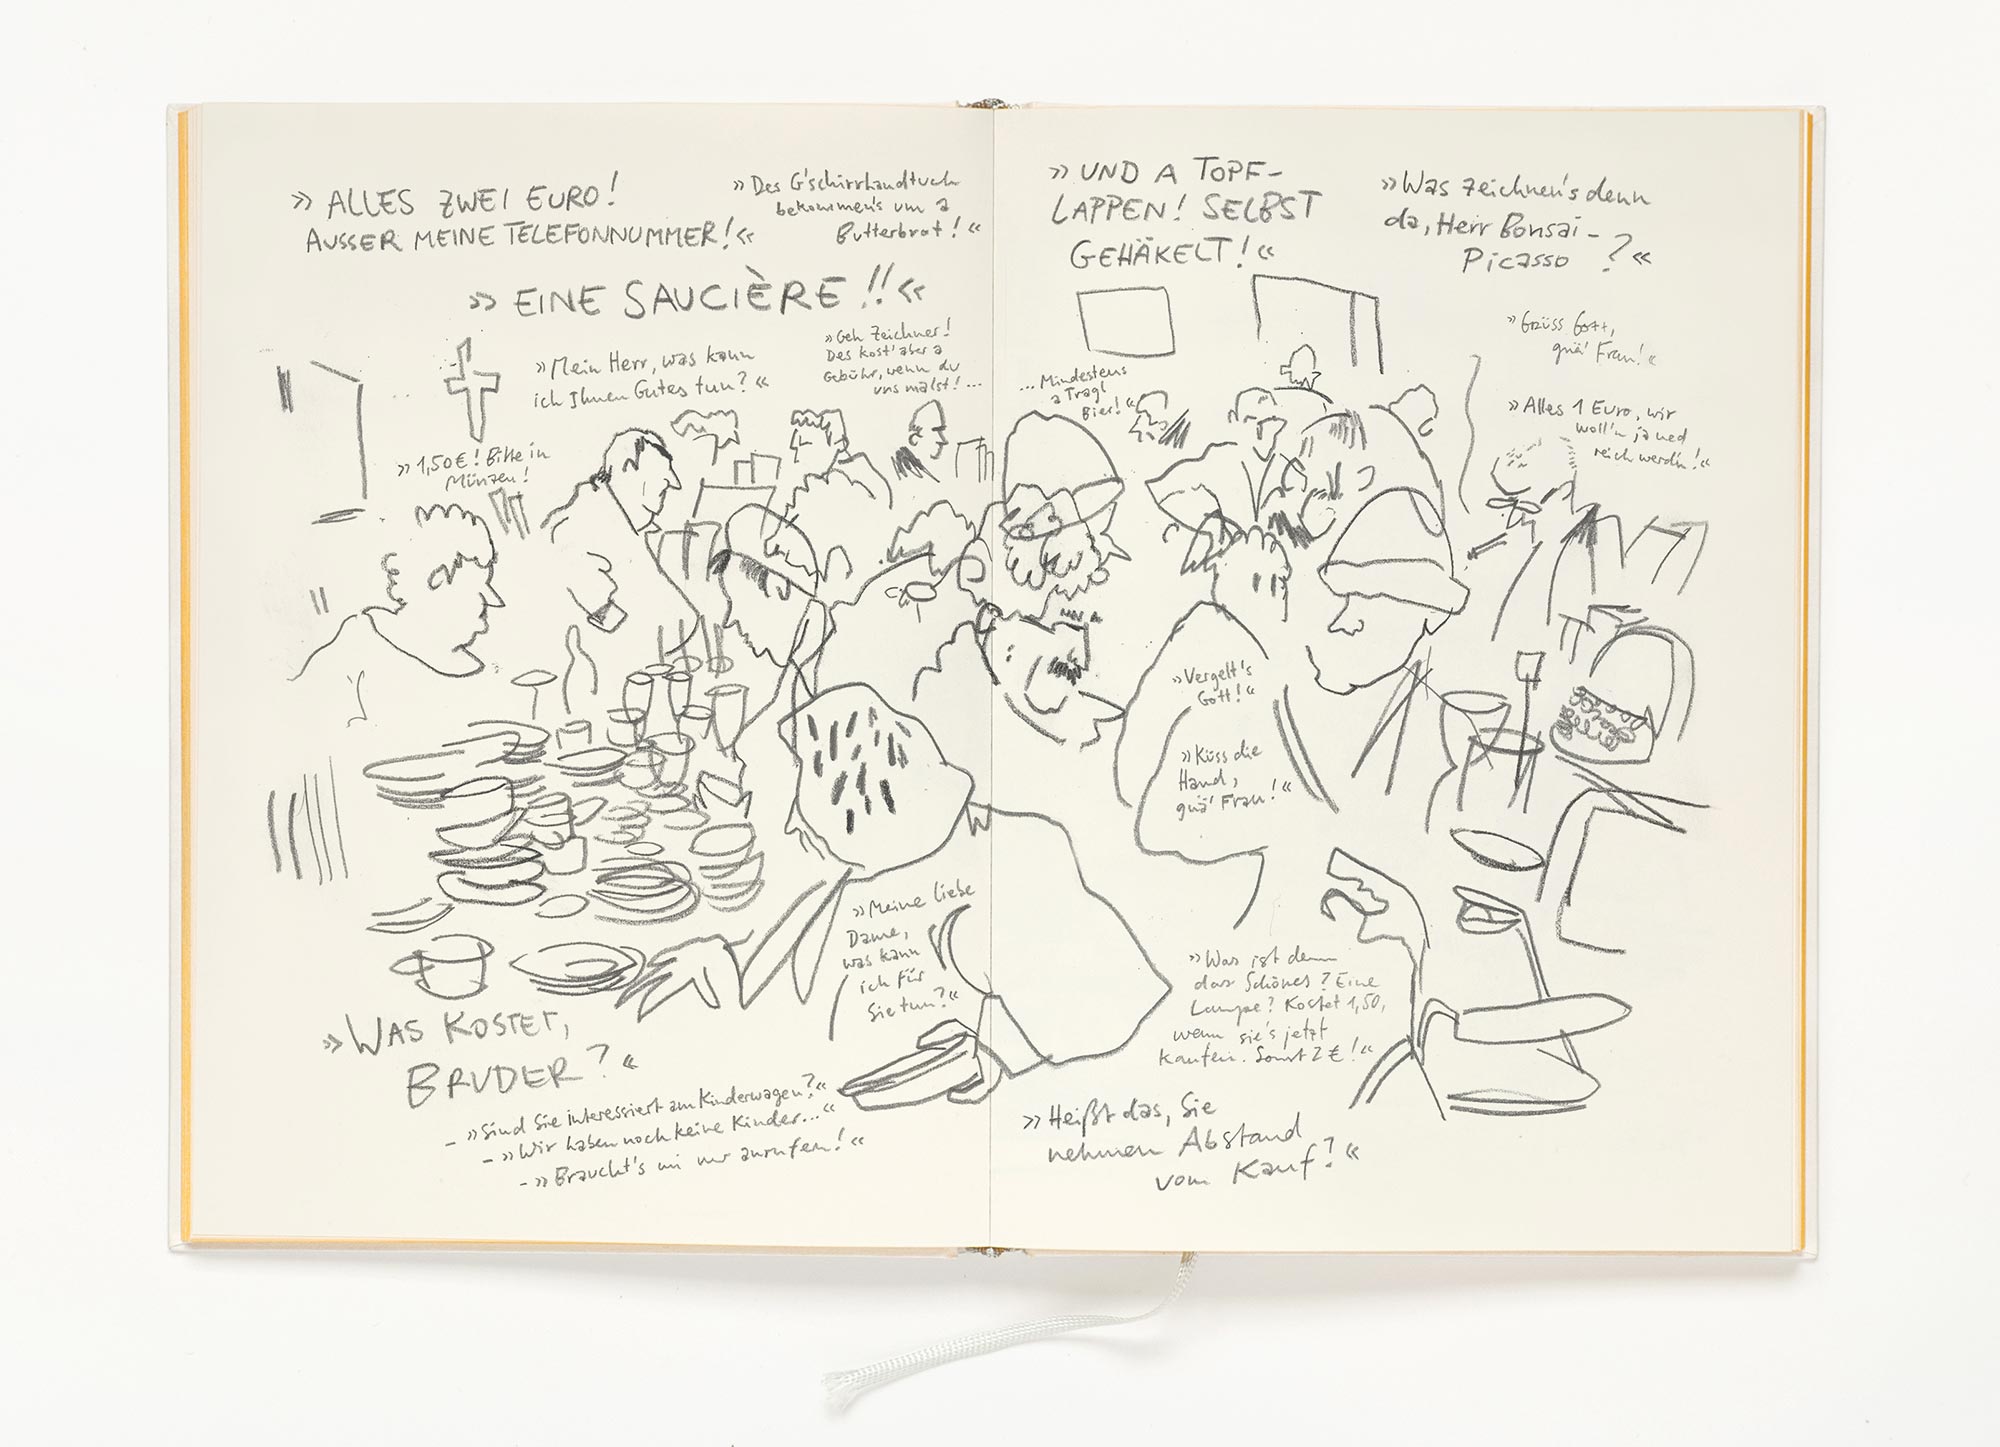 »ALLES ZWEI EURO!
AUSSER MEINE TELEFONNUMMER!«
»Des G'schirrhandtuch
bekommen's um a
Butterbrot!«
»EINE SAUCIÈRE!!«
»Mein Herr, was kann
ich Ihnen Gutes tun?«
»Geh Zeichner!
Des kost' aber a
Gebühr, wenn du
uns malst!...
»1,50€! Bitte in
Münzen!
»Meine liebe
Dame,
was kann
ich für
Sie tun?«
»WAS KOSTET,
BRUDER?«
- »Sind Sie interessiert am Kinderwagen?«
- »Wir haben noch keine Kinder...«
- »Braucht's mi nur anrufen!«
»UND A TOPF-
LAPPEN! SELBST
GEHÄKELT!«
»Was zeichnen's denn
da, Herr Bonsai-
Picasso?«
...Mindestens
a Tragl
Bier!«
»Grüss Gott,
gnä' Frau!«
»Alles 1 Euro, wir
woll'n ja ned
reich werd'n!«
»Vergelt's
Gott!«
»Küss die
Hand,
gnä' Frau!«
»Was ist denn
das Schönes? Eine
Lampe? Kostet 1,50,
wenn sie's jetzt
kaufen. Sonst 2€!«
»Heißt das, Sie
nehmen Abstand
vom Kauf?«